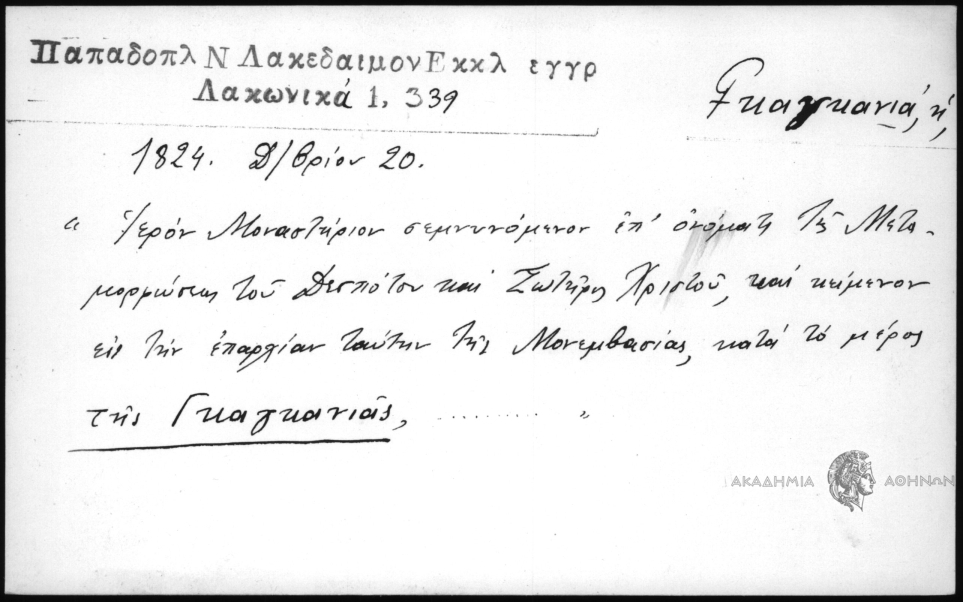 Παπαδοπλ Ν Λακεδαιμον Εκκλ εγγρ
Λακωνικά 1, 339
Γκαγκανιά, ἡ,
1824. Δ/βρίου 20.
“ Ἱερόν Μοναστήριον σεμνυνόμενον ἐπ' ὀνόματι τῆς Μετα-
μορφώσεως τοῦ Δεσπότου καί Σωτῆρος Χριστοῦ, καί κείμενον
εἰς τήν ἐπαρχίαν ταύτην τῆς Μονεμβασίας, κατά τό μέρος
τῆς Γκαγκανιᾶς, .......... „
ΑΚΑΔΗΜΙΑ ΑΘΗΝΩΝ